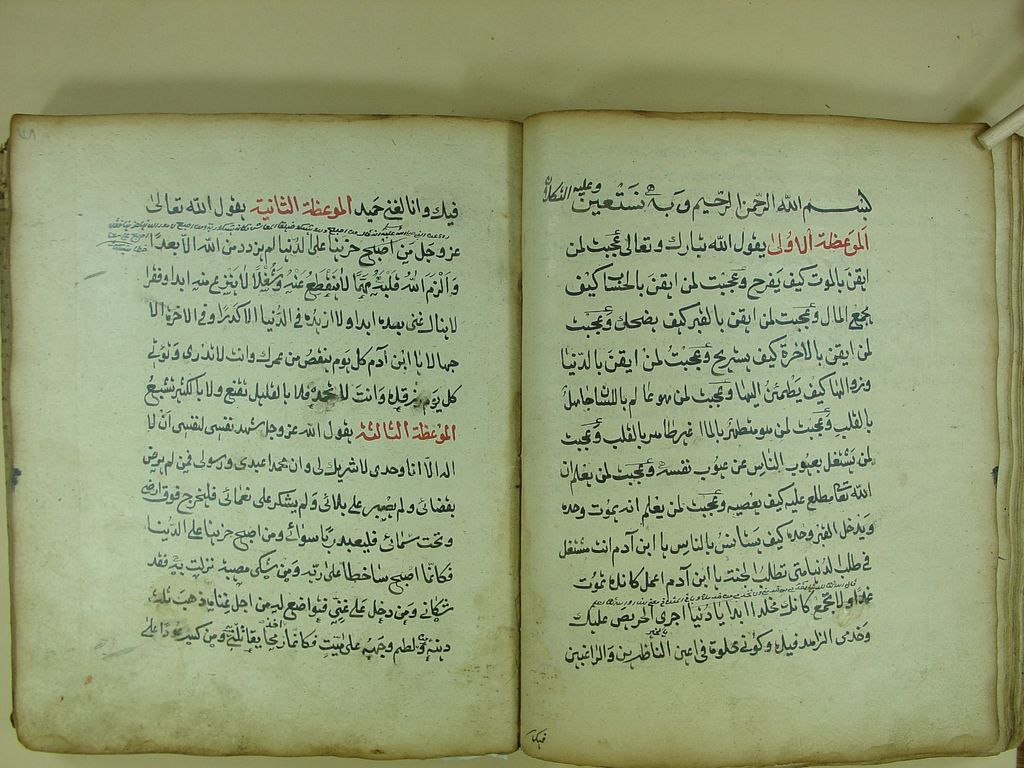 بسم الله الرحمن الرحيم وبه نستعين وعليه التكلان
الموعظة الاولى يقول الله تبارك وتعالى عجبت لمن
ايقن بالموت كيف يفرح وعجبت لمن ايقن بالحساب كيف
يجمع المال وعجبت لمن ايقن بالقبر كيف يضحك وعجبت
لمن ايقن بالاخرة كيف يستريح وعجبت لمن ايقن بالدنيا
وزوالها كيف يطمئن اليها وعجبت لمن هو عالم باللسان جاهل
بالقلب وعجبت لمن هو متطهر بالماء غير طاهر بالقلب وعجبت
لمن يشتغل بعيوب الناس عن عيوب نفسه وعجبت لمن يعلم ان
الله تعا مطلع عليه كيف يعصيه وعجبت لمن يعلم انه يموت وحده
ويدخل القبر وحده كيف يستأنس بالناس يا ابن آدم انت مشتغل
في طلب الدنيا متى تطلب الجنة يا ابن آدم اعمل كانك تموت
غدا ولا تجمع كانك مخلد ابدا يا دنيا اجرى الحريص عليك
وخدمى الزاهد فيك وكونى حلوة في اعين الناظرين والراغبين
فيك وانا لغنى حميد الموعظة الثانية يقول الله تعالى
عز وجل من اصبح حزينا على الدنيا لم يزدد من الله الا بعدا
والزم الله قلبه همًّا لا ينقطع عنه وشغلا لا يتفرغ منه ابدا وفقرا
لا ينال غنى بعده ابدا ولا ازيده في الدنيا الا كدرا وفي الاخرة الا
جهالا يا ابن آدم كل يوم ينقص من عمرك وانت لا تدرى وتؤتى
كل يوم رزقك وانت لا تحمده فلا بالقليل تقنع ولا بالكثير تشبع
الموعظة الثالثة يقول الله عز وجل شهد نفسى لنفسى ان لا
اله الا انا وحدى لا شريك لى وان محمدا عبدى ورسولى فمن لم يرض
بقضائى ولم يصبر على بلائى ولم يشكر على نعمائى فليخرج فوق ارضى
وتحت سمائى فليعبد ربا سوائى ومن اصبح حزينا على الدنيا
فكانما اصبح ساخطا على ربه ومن شكى مصيبة نزلت به فقد
شكانى ومن دخل على غنى فتواضع ليه من اجل غنايه ذهبت ثلث
دينه ولطم وجهه على ميت فكانما اخذ رمحا يقاتلنى ومن كسر عودا على